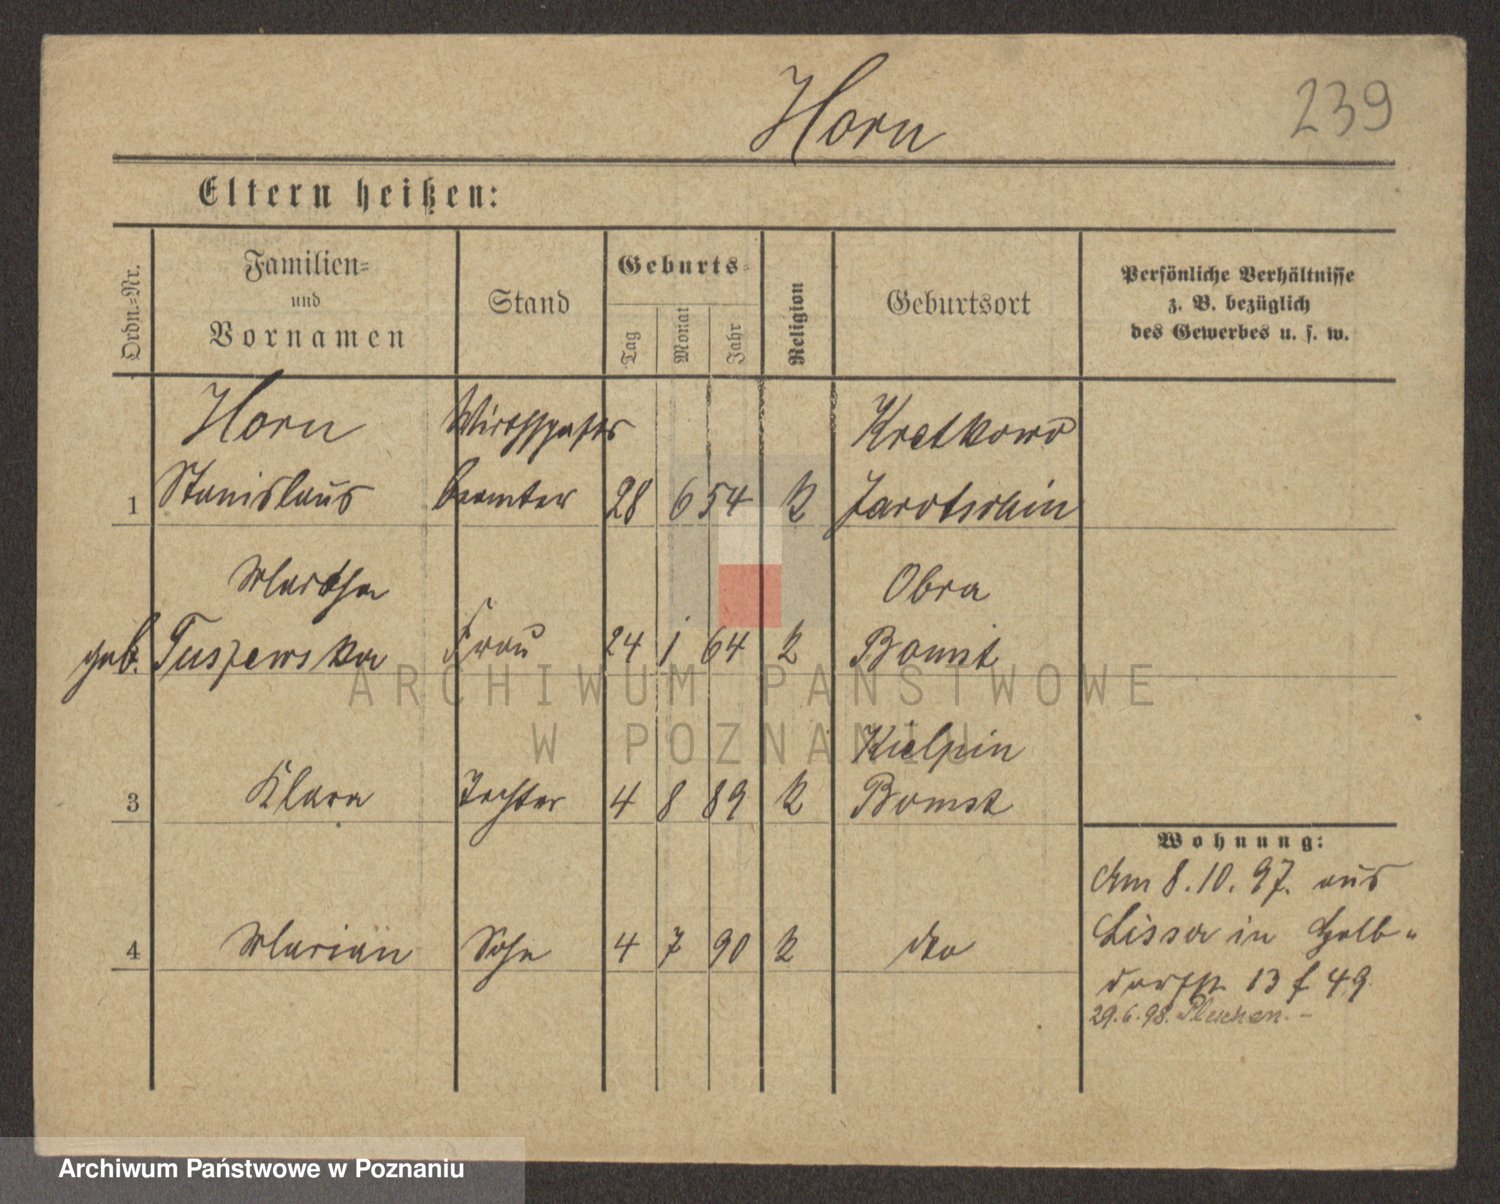 Horn 239
Eltern heißen:
Ordn.=Nr. Familien= und Vornamen Stand Geburts= Tag Monat Jahr Religion Geburtsort Persönliche Verhältnisse z. B. bezüglich des Gewerbes u. s. w.
Horn Wirthschafts Kretkowo
1 Stanislaus beamter 28 6 54 k Jarotschin
Martha Obra
geb. Tuszewska Frau 24 1 64 k Bomst
Kielpin
3 Klara Tochter 4 8 89 k Bomst
Wohnung:
Am 8.10.97. aus
Lissa in
4 Marian Sohn 4 7 90 k dto
13 f 49
29.6.98. Pleschen.-
ARCHIWUM PAŃSTWOWE
W POZNANIU
Archiwum Państwowe w Poznaniu